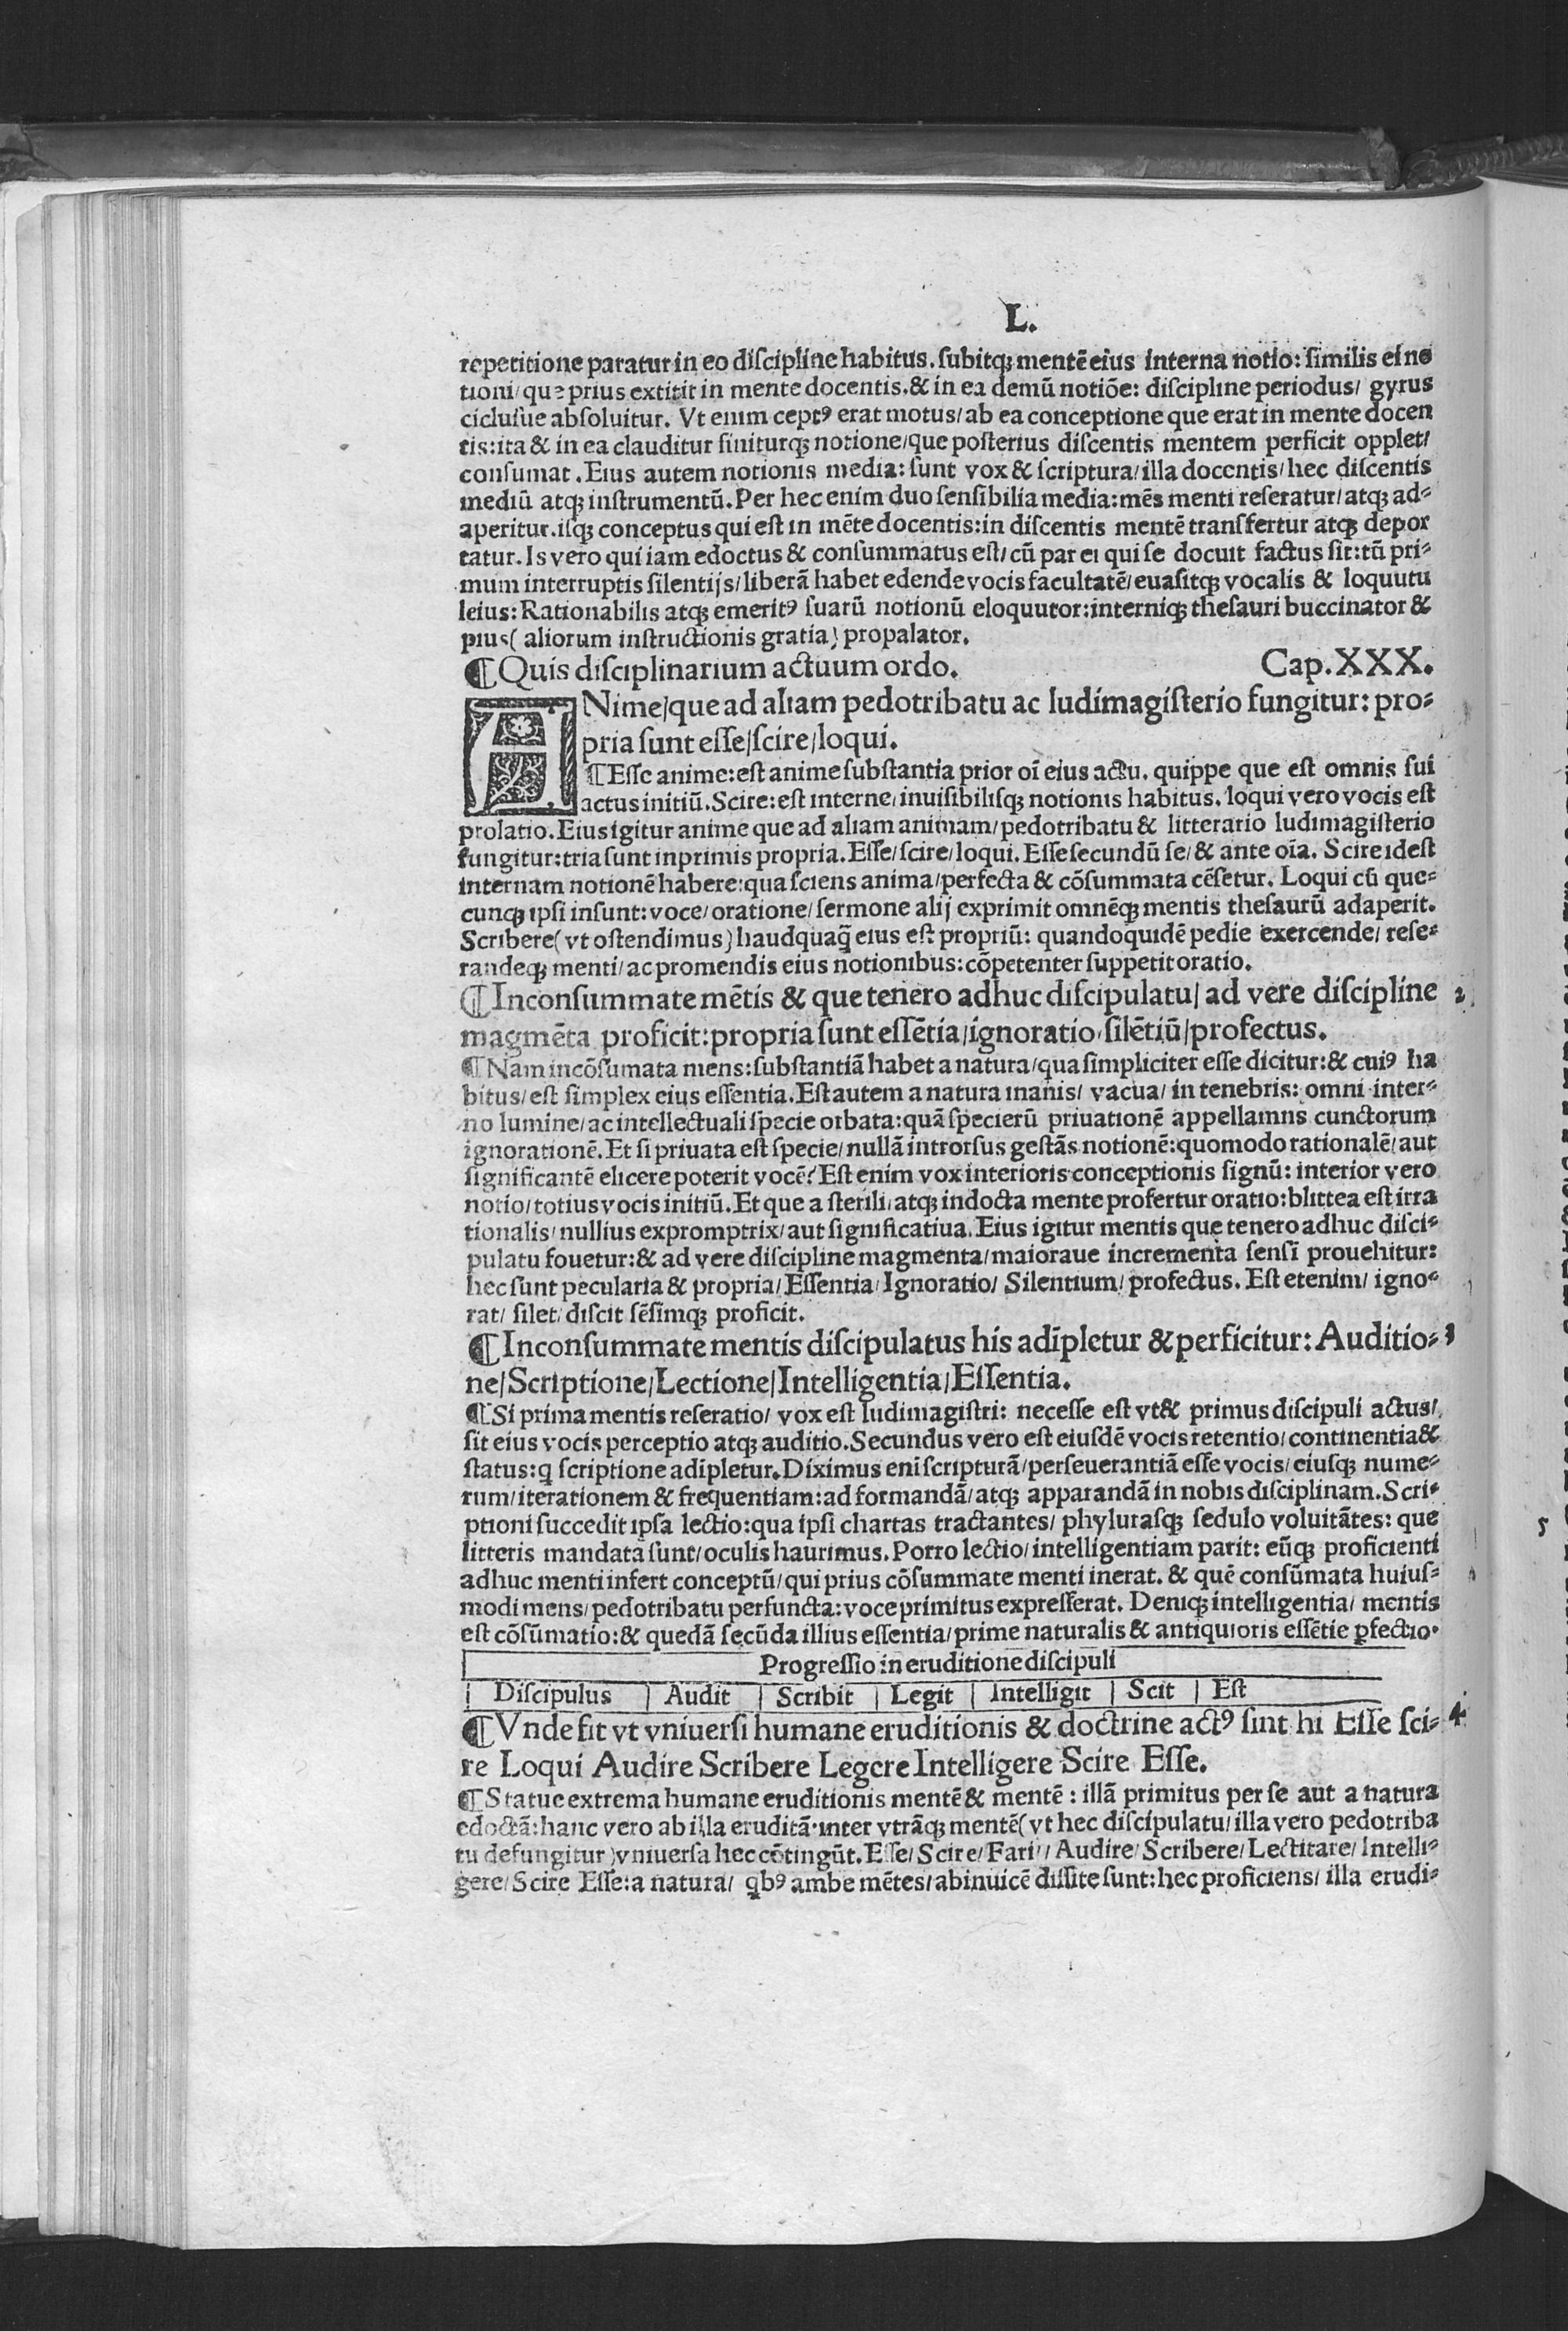 L.
repetitione paratur in eo discipline habitus. subitqꝫ mentē eius interna notio: similis ei no
tioni/ que prius extitit in mente docentis. & in ea demū notiōe: discipline periodus/ gyrus
ciclusue absoluitur. Vt enim ceptꝰ erat motus/ ab ea conceptione que erat in mente docen
tis: ita & in ea clauditur finiturqꝫ notione/ que posterius discentis mentem perficit opplet/
consumat. Eius autem notionis media: sunt vox & scriptura/ illa docentis/ hec discentis
mediū atqꝫ instrumentū. Per hec enim duo sensibilia media: mēs menti reseratur/ atqꝫ ad⸗
aperitur. isqꝫ conceptus qui est in mēte docentis: in discentis mentē transfertur atqꝫ depor
tatur. Is vero qui iam edoctus & consummatus est/ cū par ei qui se docuit factus sit: tū pri⸗
mum interruptis silentijs/ liberā habet edende vocis facultatē/ euasitqꝫ vocalis & loquutu
leius: Rationabilis atqꝫ emeritꝰ suarū notionū eloquutor: interniqꝫ thesauri buccinator &
pius( aliorum instructionis gratia) propalator.
¶Quis disciplinarium actuum ordo. Cap. XXX.
ANime/ que ad aliam pedotribatu ac ludimagisterio fungitur: pro⸗
pria sunt esse/ scire/ loqui.
¶Esse anime: est anime substantia prior oī eius actu. quippe que est omnis sui
actus initiū. Scire: est interne/ inuisibilisqꝫ notionis habitus. loqui vero vocis est
prolatio. Eius igitur anime que ad aliam animam/ pedotribatu & litterario ludimagisterio
fungitur: tria sunt inprimis propria. Esse/ scire/ loqui. Esse secundū se/ & ante oīa. Scire idest
internam notionē habere: qua sciens anima/ perfecta & cōsummata cēsetur. Loqui cū que⸗
cunqꝫ ipsi insunt: voce/ oratione/ sermone alij exprimit omnēqꝫ mentis thesaurū adaperit.
Scribere( vt ostendimus) haudquaq̄ eius est propriū: quandoquidē pedie exercende/ rese⸗
randeqꝫ menti/ ac promendis eius notionibus: cōpetenter suppetit oratio.
¶Inconsummate mētis & que tenero adhuc discipulatu/ ad vere discipline 2
magmēta proficit: propria sunt essētia/ ignoratio/ silētiū/ profectus.
¶Nam incōsumata mens: substantiā habet a natura/ qua simpliciter esse dicitur: & cuiꝰ ha
bitus/ est simplex eius essentia. Est autem a natura inanis/ vacua/ in tenebris: omni inter⸗
no lumine/ ac intellectuali specie orbata: quā specierū priuationē appellamns cunctorum
ignorationē. Et si priuata est specie/ nullā introrsus gestās notionē: quomodo rationalē/ aut
significantē elicere poterit vocē? Est enim vox interioris conceptionis signū: interior vero
notio/ totius vocis initiū. Et que a sterili/ atqꝫ indocta mente profertur oratio: blittea est irra
tionalis/ nullius expromptrix/ aut significatiua. Eius igitur mentis que tenero adhuc disci⸗
pulatu fouetur: & ad vere discipline magmenta/ maioraue incrementa sensī prouehitur:
hec sunt pecularia & propria/ Essentia/ Ignoratio/ Silentium/ profectus. Est etenim/ igno⸗
rat/ silet/ discit sēsimqꝫ proficit.
¶Inconsummate mentis discipulatus his adīpletur & perficitur: Auditio⸗ 3
ne/ Scriptione/ Lectione/ Intelligentia/ Essentia.
¶Si prima mentis reseratio/ vox est ludimagistri: necesse est vt & primus discipuli actus/
sit eius vocis perceptio atqꝫ auditio. Secundus vero est eiusdē vocis retentio/ continentia &
status: q̄ scriptione adīpletur. Diximus enī scripturā/ perseuerantiā esse vocis/ eiusqꝫ nume⸗
rum/ iterationem & frequentiam: ad formandā/ atqꝫ apparandā in nobis disciplinam. Scri⸗
ptioni succedit ipsa lectio: qua ipsi chartas tractantes/ phylurasqꝫ sedulo voluitātes: que
litteris mandata sunt/ oculis haurimus. Porro lectio/ intelligentiam parit: eūqꝫ proficienti
adhuc menti infert conceptū/ qui prius cōsummate menti inerat. & quē consūmata huius⸗
modi mens/ pedotribatu perfuncta: voce primitus expresserat. Deniqꝫ intelligentia/ mentis
est cōsūmatio: & quedā secūda illius essentia/ prime naturalis & antiquioris essētie ꝑfectio.
Progressio in eruditione discipuli
Discipulus | Audit | Scribit | Legit | Intelligit | Scit | Est
¶Vnde fit vt vniuersi humane eruditionis & doctrine actꝰ sint hi Esse sci⸗ 4
re Loqui Audire Scribere Legere Intelligere Scire Esse.
¶Statue extrema humane eruditionis mentē & mentē: illā primitus per se aut a natura
edoctā: hanc vero ab illa eruditā. inter vtrāqꝫ mentē( vt hec discipulatu/ illa vero pedotriba
tu defungitur) vniuersa hec cōtingūt. Esse/ Scire/ Fari/ Audire/ Scribere/ Lectitare/ Intelli⸗
gere/ Scire Esse: a natura/ q̄bꝰ ambe mētes/ abinuicē dissite sunt: hec proficiens/ illa erudi⸗
5